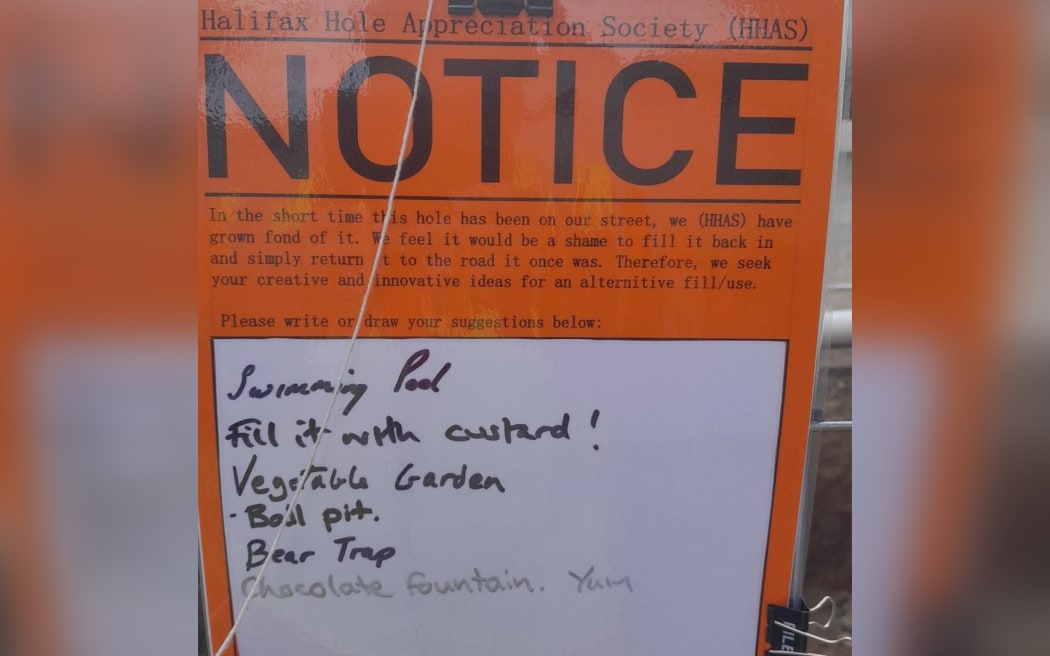 Halifax Hole Appreciation Society (HHAS)
NOTICE
In the short time this hole has been on our street, we (HHAS) have
grown fond of it. We feel it would be a shame to fill it back in
and simply return it to the road it once was. Therefore, we seek
your creative and innovative ideas for an alternitive fill/use.
Please write or draw your suggestions below:
Swimming Pool
Fill it with custard!
Vegetable Garden
· Ball pit.
Bear Trap
Chocolate fountain. Yum